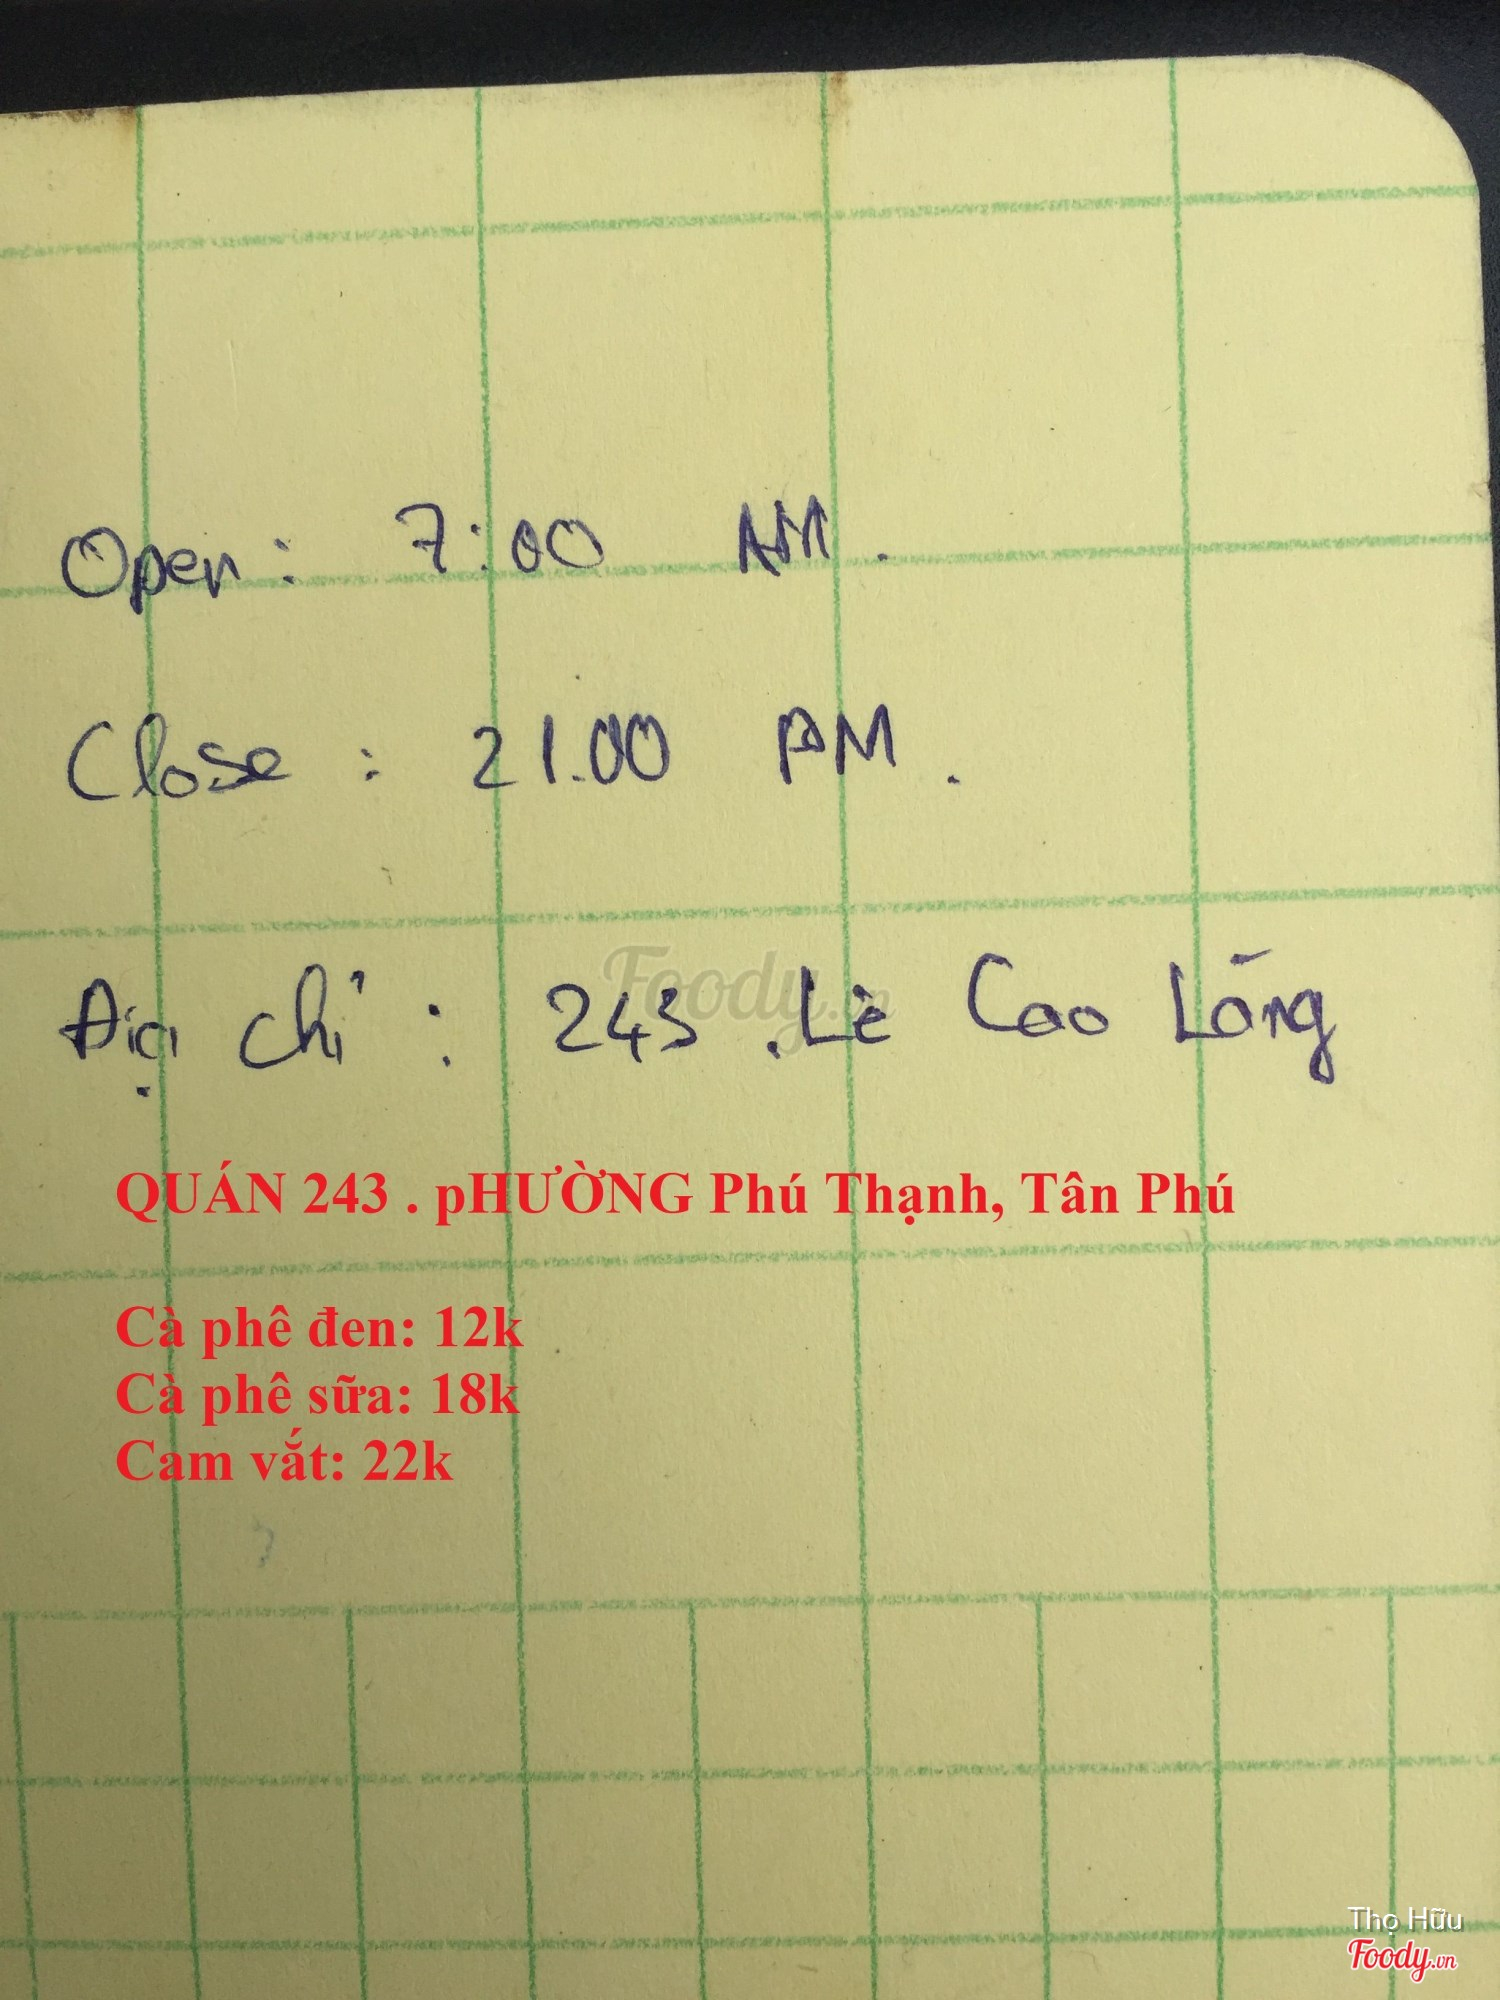 Open: 7:00 AM.
Close: 21.00 PM.
Địa chỉ: 243 . Lê Cao Lãng
Foody.vn
QUÁN 243 . pHƯỜNG Phú Thạnh, Tân Phú
Cà phê đen: 12k
Cà phê sữa: 18k
Cam vắt: 22k
Thọ Hữu
Foody.vn